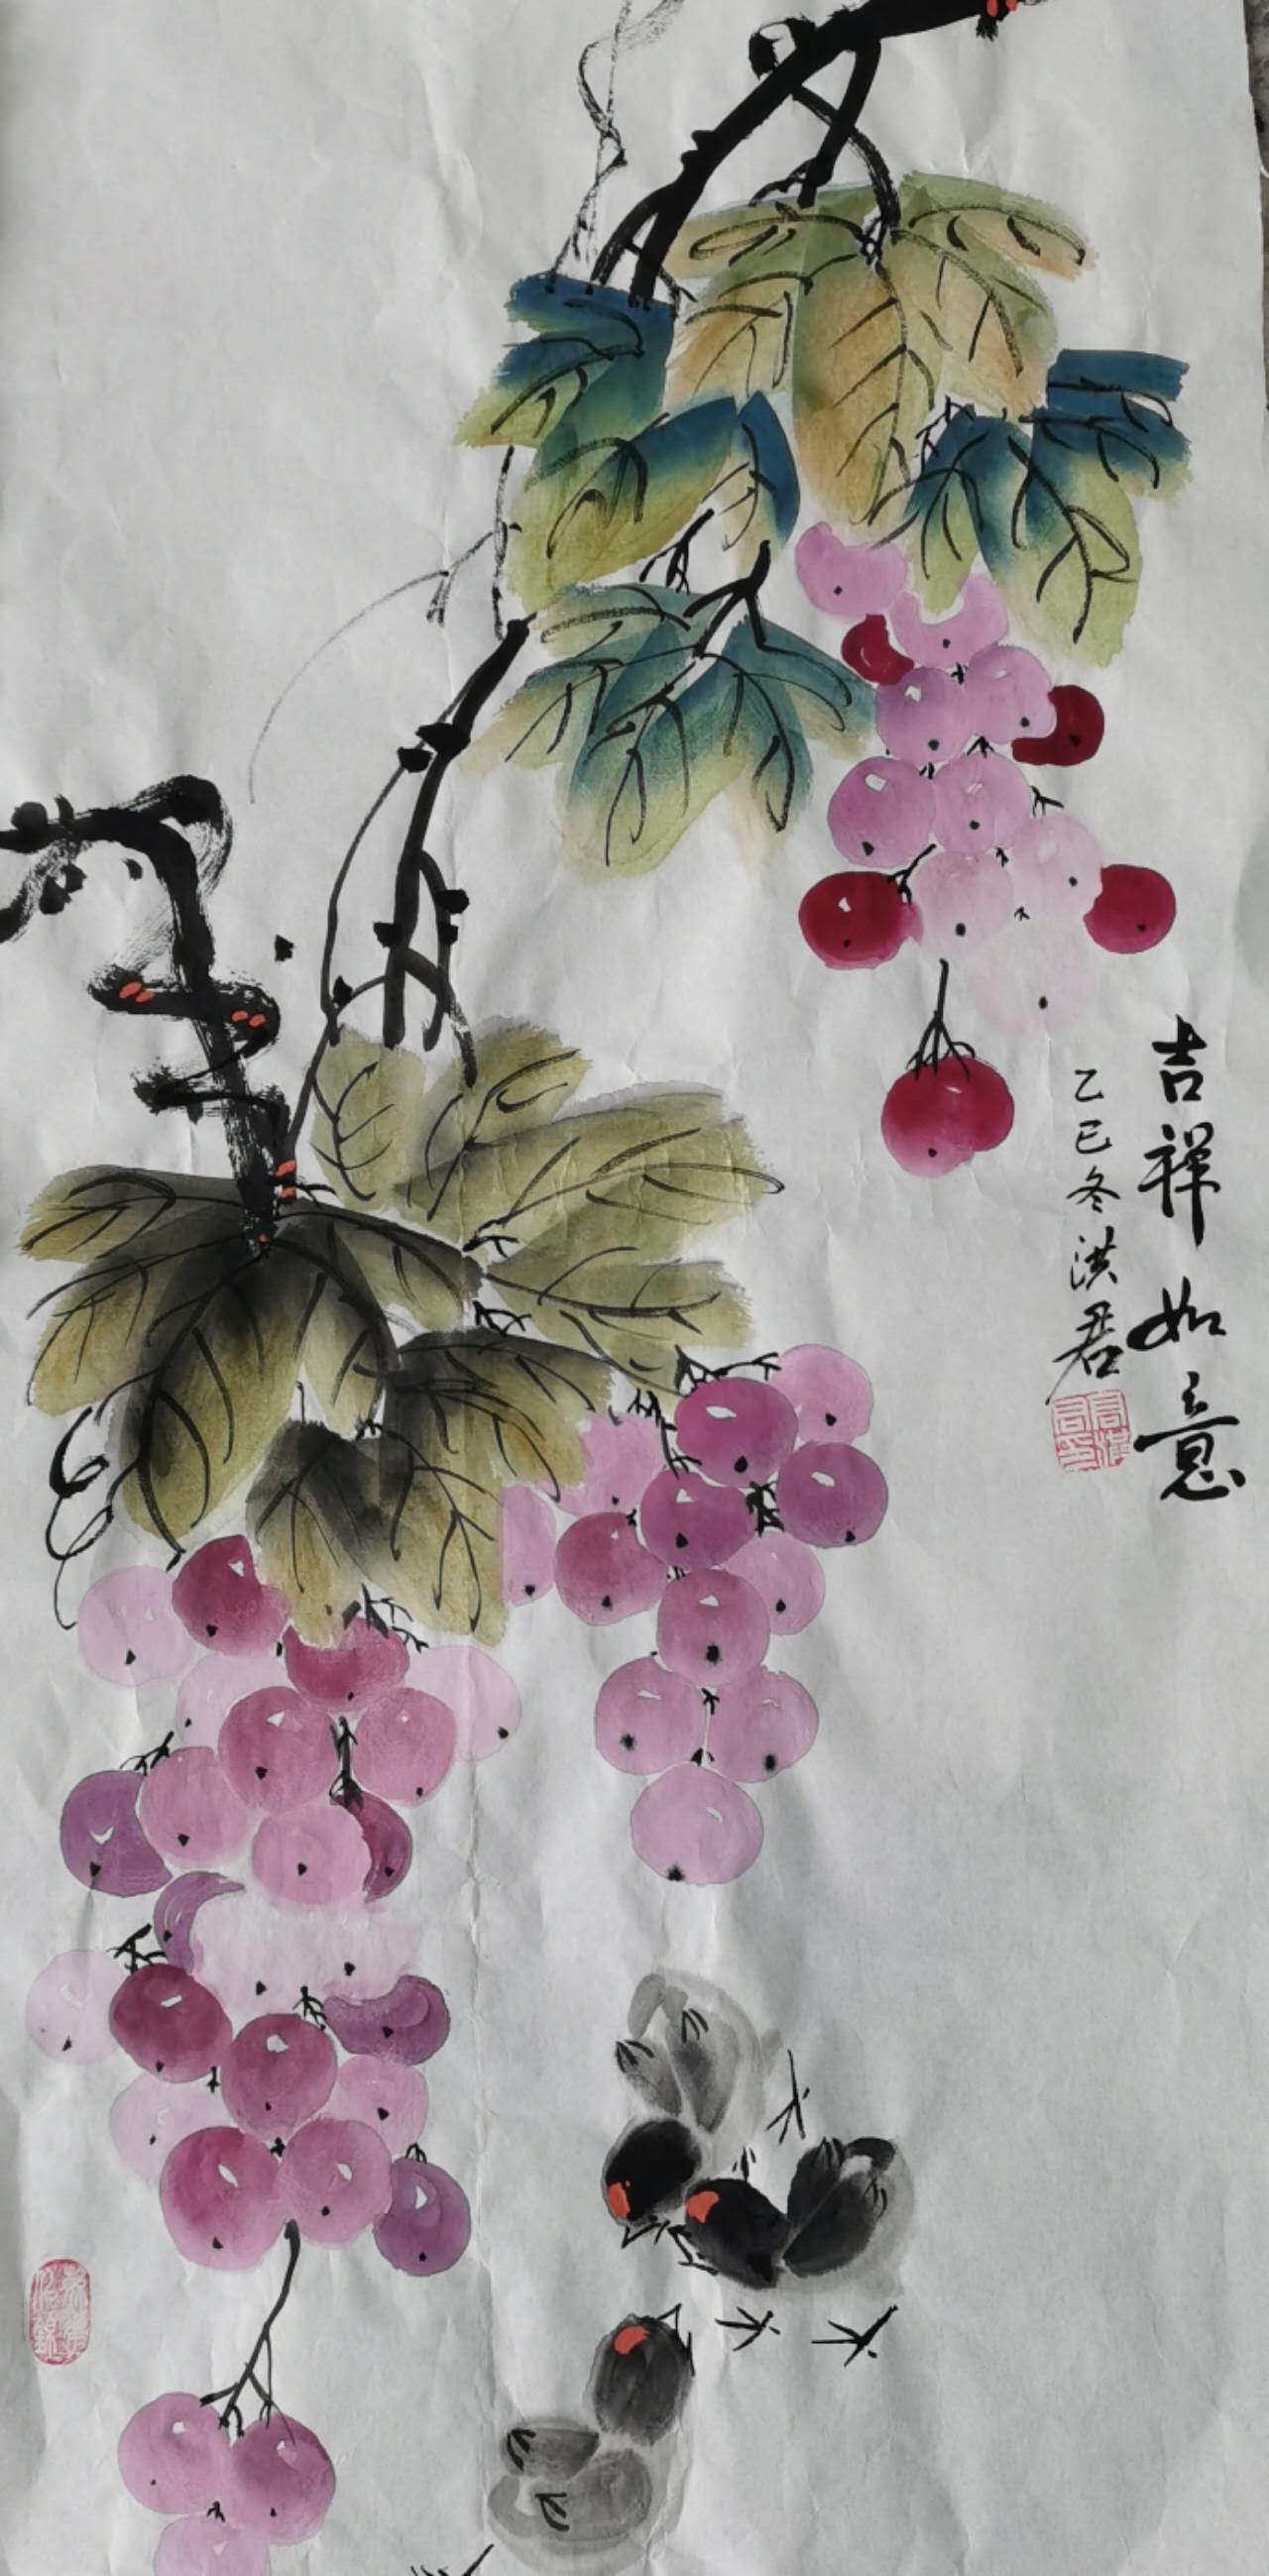 吉祥如意
乙巳冬洪君